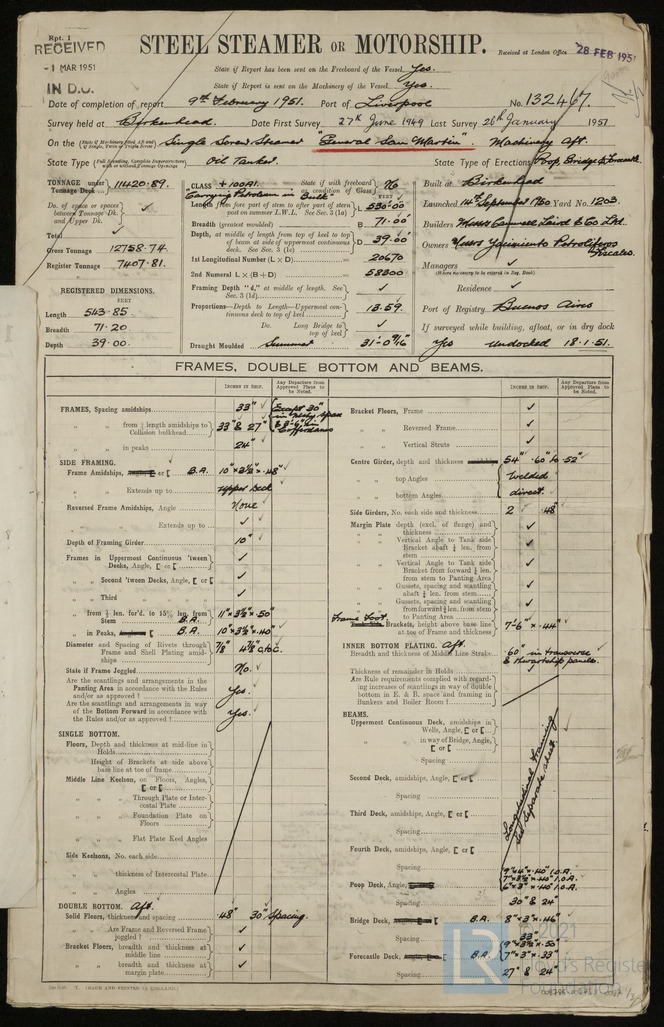 Rpt. 1
RECEIVED
-1 MAR 1951
IN D.O.
STEEL STEAMER OR MOTORSHIP.
Received at London Office 28 FEB 1951
State if Report has been sent on the Freeboard of the Vessel Yes.
State if Report is sent on the Machinery of the Vessel Yes.
Date of completion of report 9th February 1951. Port of Liverpool No. 132467.
Survey held at Birkenhead. Date First Survey 27th June 1949 Last Survey 26th January 1951
On the Single Screw Steamer "General San Martin". Machinery Aft.
State Type Oil Tanker. State Type of Erections Poop, Bridge & Forecastle
TONNAGE under Tonnage Dk. 11420.89.
Do. of space or spaces between Tonnage Dk. and Upper Dk.
Total
Gross Tonnage 12758.74.
Register Tonnage 7407.81.
REGISTERED DIMENSIONS.
FEET
Length 543.85
Breadth 71.20
Depth 39.00
CLASS +100A1. State if with freeboard as condition of Class No
"Carrying Petroleum in Bulk"
Length from fore part of stem to after part of stern post on summer L.W.L. See Sec. 3 (1a) L 530.00
Breadth (greatest moulded) B 71.00
Depth, at middle of length from top of keel to top of beam at side of uppermost continuous deck. See Sec. 3 (1c) D 39.00
1st Longitudinal Number (L × D) 20670
2nd Numeral L × (B + D) 58300
Framing Depth "d," at middle of length. See Sec. 3 (1d)
Proportions—Depth to Length—Uppermost continuous deck to top of keel 13.59.
Do. Long Bridge to top of keel
Draught Moulded Summer 31'-0 9/16"
Built at Birkenhead
Launched 14th September 1950 Yard No. 1203.
Builders Messrs Cammell Laird & Co Ltd.
Owners Messrs Yacimientos Petroliferos Fiscales.
Managers
(Where necessary to be entered in Reg. Book)
Residence
Port of Registry Buenos Aires
If surveyed while building, afloat, or in dry dock
Yes Undocked 18.1.51.
FRAMES, DOUBLE BOTTOM AND BEAMS.
INCHES IN SHIP. Any Departure from Approved Plans to be Noted.
FRAMES, Spacing amidships 33"
" " from ⅕ length amidships to Collision bulkhead 33" & 27"
" " in peaks 24"
SIDE FRAMING.
Frame Amidships, B.A. 10" × 3½" × .48"
" " Extends up to Upper Deck
Reversed Frame Amidships, Angle None
" " Extends up to
Depth of Framing Girder 10"
Frames in Uppermost Continuous 'tween Decks, Angle, [ or [
" " Second 'tween Decks, Angle, [ or [
" " Third " " "
" " from ⅕ len. for'd. to 15% len. from Stem B.A. 11" × 3½" × .50"
" " in Peaks, B.A. 10" × 3½" × .40"
Diameter and Spacing of Rivets through Frame and Shell Plating amidships 7/8"
State if Frame Joggled No.
Are the scantlings and arrangements in the Panting Area in accordance with the Rules and/or as approved? Yes.
Are the scantlings and arrangements in way of the Bottom Forward in accordance with the Rules and/or as approved? Yes.
SINGLE BOTTOM.
Floors, Depth and thickness at mid-line in Holds
Height of Brackets at side above base line at toe of frame
Middle Line Keelson, on Floors, Angles, [ or [
" " Through Plate or Intercostal Plate
" " Foundation Plate on Floors
" " Flat Plate Keel Angles
Side Keelsons, No. each side
" " thickness of Intercostal Plate
" " Angles
DOUBLE BOTTOM. Aft.
Solid Floors, thickness and spacing .48" 30" Spacing
" " Are Frame and Reversed Frame joggled?
Bracket Floors, breadth and thickness at middle line
" " breadth and thickness at margin plate
INCHES IN SHIP. Any Departure from Approved Plans to be Noted.
Bracket Floors, Frame
" " Reversed Frame
" " Vertical Struts
Centre Girder, depth and thickness 54" .60" to .52"
" " top Angles welded
" " bottom Angles direct.
Side Girders, No. each side and thickness 2 .48"
Margin Plate depth (excl. of flange) and thickness
" " Vertical Angle to Tank side Bracket abaft ¼ len. from stem
" " Vertical Angle to Tank side Bracket from forward ¼ len. from stem to Panting Area
" " Gussets, spacing and scantling abaft ¼ len. from stem
" " Gussets, spacing and scantling from forward ¼ len. from stem to Panting Area
Frame Foot Brackets, height above base line at toe of Frame and thickness 7'-6" × .44"
INNER BOTTOM PLATING. Aft.
Breadth and thickness of Middle Line Strake .60" in transverse & thwartship panels.
Thickness of remainder in Holds
Are Rule requirements complied with regarding increases of scantlings in way of double bottom in E. & B. space and framing in Bunkers and Boiler Room?
BEAMS.
Uppermost Continuous Deck, amidships in Wells, Angle, [ or [
" " in way of Bridge, Angle, [ or [
" " Spacing
Second Deck, amidships, Angle, [ or [
" " Spacing
Third Deck, amidships, Angle, [ or [
" " Spacing
Fourth Deck, amidships, Angle, [ or [
" " Spacing
Longitudinal Framing See Separate sheet.
Poop Deck, Angle 9" × 4" × .40" I.O.A.
7" × 3½" × .40" I.O.A.
6" × 3" × .40" I.O.A.
" " Spacing 30" & 24"
Bridge Deck, B.A. 8" × 3" × .46"
" " Spacing 33"
Forecastle Deck, B.A. 9" × 3½" × .50"
7" × 3" × .33"
" " Spacing 27" & 24"
(MADE AND PRINTED IN ENGLAND.)
LR
© 2021
Lloyd's Register
Foundation